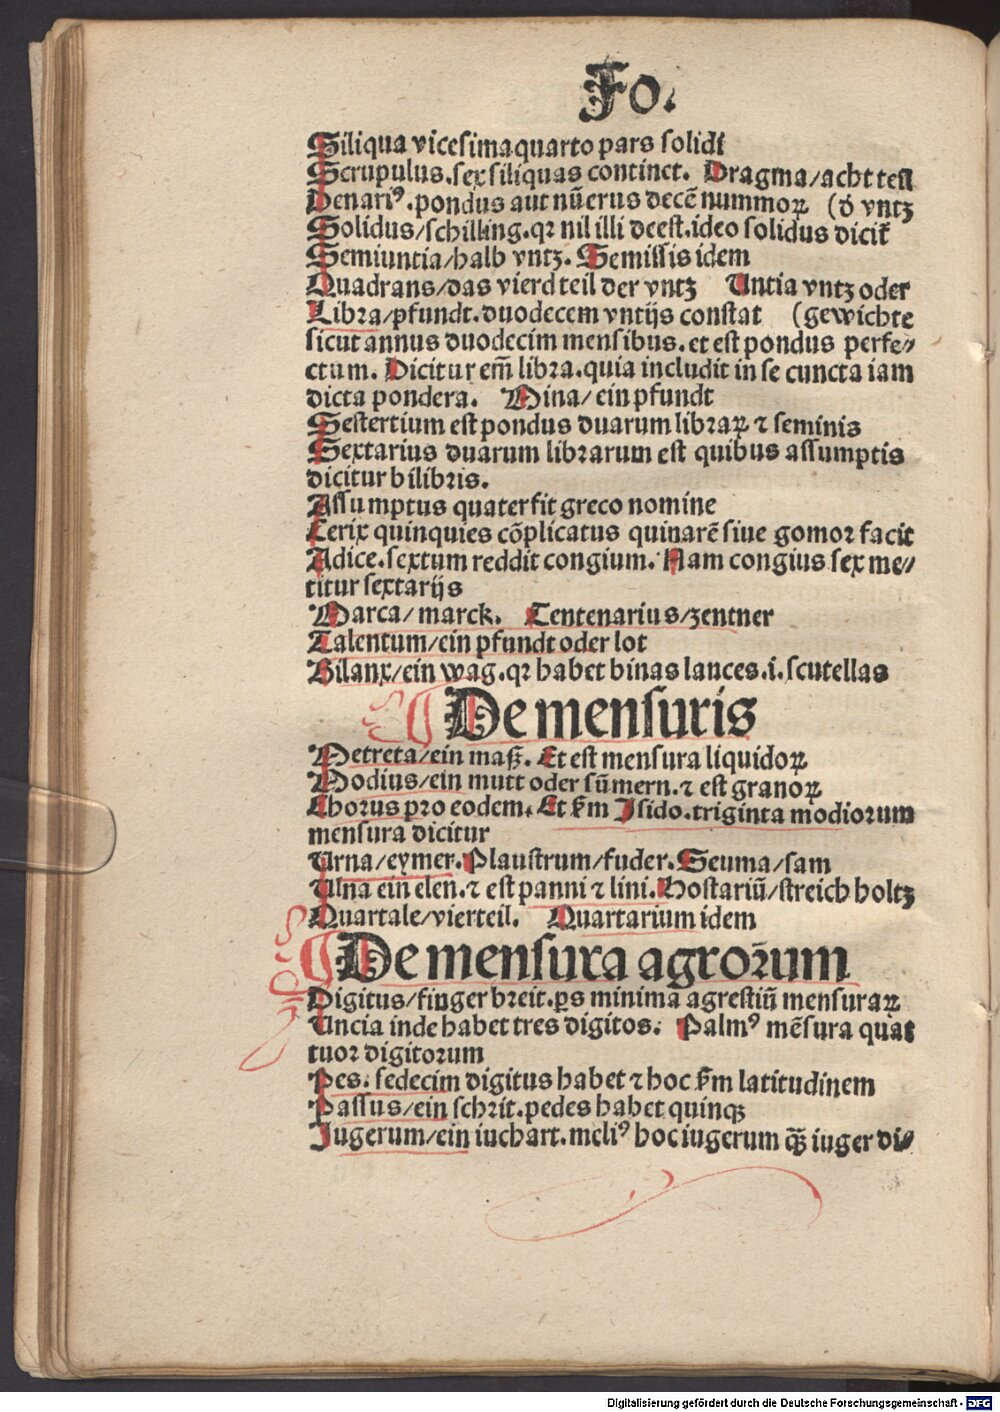 Fo.
Siliqua vicesimaquarto pars solidi
Scrupulus.sex siliquas continet. Dragma/acht teil
Denariꝰ.pondus aut nūerus decē nummoꝝ (d̕ vntz
Solidus/schilling.qꝛ nil illi deest.ideo solidus dicit̄
Semiuntia/halb vntz. Semissis idem
Quadrans/das vierd teil der vntz Untia vntz oder
Libra/pfundt.duodecem vntijs constat (gewichte
sicut annus duodecim mensibus.et est pondus perfe⸗
ctum. Dicitur em̄ libra.quia includit in se cuncta iam
dicta pondera. Mina/ein pfundt
Sestertium est pondus duarum libraꝝ ⁊ seminis
Sextarius duarum librarum est quibus assumptis
dicitur bilibris.
Assumptus quater fit greco nomine
Cerix quinquies cōplicatus quinarē siue gomor facit
Adice.sextum reddit congium. Nam congius sex me⸗
titur sextarijs
Marca/marck. Centenarius/zentner
Talentum/ein pfundt oder lot
Bilanx/ein wag.qꝛ habet binas lances.i.scutellas
¶ De mensuris
Metreta/ein maß. Et est mensura liquidoꝝ
Modius/ein mutt oder sūmern.⁊ est granoꝝ
Chorus pro eodem. Et s̄m Isido.triginta modiorum
mensura dicitur
Urna/eymer. Plaustrum/fuder. Seuma/sam
Ulna ein elen.⁊ est panni ⁊ lini. Hostariū/streich holtz
Quartale/vierteil. Quartarium idem
¶ De mensura agrorum
Digitus/finger breit.ꝑs minima agrestiū mensuraꝝ
Uncia inde habet tres digitos. Palmꝰ mēsura quat
tuor digitorum
Pes.sedecim digitus habet ⁊ hoc s̄m latitudinem
Passus/ein schrit.pedes habet quinqꝫ
Jugerum/ein iuchart.meliꝰ hoc iugerum q̄ꝫ iuger di⸗
Digitalisierung gefördert durch die Deutsche Forschungsgemeinschaft - DFG